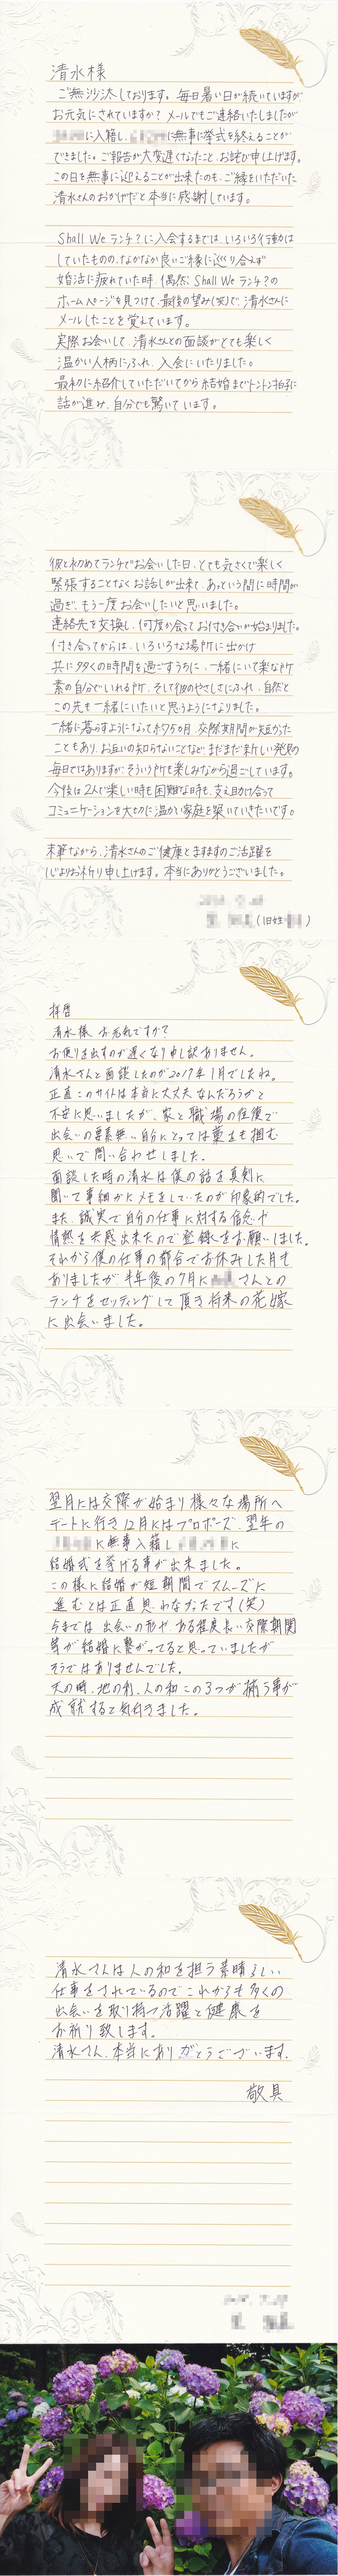 清水様
ご無沙汰しております。毎日暑い日が続いていますが
お元気にされていますか？メールでもご連絡いたしましたが
に入籍し、に無事に挙式を終えることが
できました。ご報告が大変遅くなったこと、お詫び申し上げます。
この日を無事に迎えることが出来たのも、ご縁をいただいた
清水さんのおかげだと本当に感謝しています。
Shall We ランチ？に入会するまでは、いろいろ行動は
していたものの、なかなか良いご縁に巡り合えず
婚活に疲れていた時、偶然、Shall We ランチ？の
ホームページを見つけて、最後の望み(笑)で、清水さんに
メールしたことを覚えています。
実際お会いして、清水さんとの面談がとても楽しく
温かい人柄にふれ、入会にいたりました。
最初に紹介していただいてから結婚までトントン拍子に
話が進み、自分でも驚いています。
彼と初めてランチでお会いした日、とても気さくで楽しく
緊張することなくお話しが出来て、あっという間に時間が
過ぎ、もう一度お会いしたいと思いました。
連絡先を交換し、何度か会ってお付き合いが始まりました。
付き合ってからは、いろいろな場所に出かけ
共に多くの時間を過ごすうちに、一緒にいて楽な所
素の自分でいれる所、そして彼のやさしさにふれ、自然と
この先も一緒にいたいと思うようになりました。
一緒に暮らすようになって約5か月、交際期間が短かった
こともあり、お互いの知らないことなど、まだまだ新しい発見の
毎日ではありますが、そういう所も楽しみながら過ごしています。
今後は2人で楽しい時も困難な時も、支え助け合って
コミュニケーションを大切に温かい家庭を築いていきたいです。
末筆ながら、清水さんのご健康とますますのご活躍を
心よりお祈り申し上げます。本当にありがとうございました。
(旧姓)
拝啓
清水様 お元気ですか？
お便りを出すのが遅くなり申し訳ありません。
清水さんと面談したのが2017年1月でしたね。
正直このサイトは本当に大丈夫なんだろうかと
不安に思いましたが、家と職場の往復で
出会いの要素無い自分にとっては藁をも掴む
思いで問い合わせしました。
面談した時の清水は僕の話を真剣に
聞いて事細かにメモをしていたのが印象的でした。
また、誠実で自分の仕事に対する信念や
情熱を共感出来たので登録をお願いしました。
それから僕の仕事の都合でお休みした月も
ありましたが半年後の7月にさんとの
ランチをセッティングして頂き将来の花嫁
に出会いました。
翌月には交際が始まり様々な場所へ
デートに行き12月にはプロポーズ、翌年の
に無事入籍しに
結婚式を挙げる事が出来ました。
この様に結婚が短期間でスムーズに
進むとは正直思わなかったです(笑)
今までは、出会いの形や、ある程度長い交際期間
等が結婚に繋がってると思っていましたが
そうではありませんでした。
天の時、地の利、人の和この3つが揃う事が
成就すると気付きました。
清水さんは人の和を担う素晴らしい
仕事をされているのでこれからも多くの
出会いを取り持つ活躍と健康を
お祈り致します。
清水さん、本当にありがとうございます。
敬具